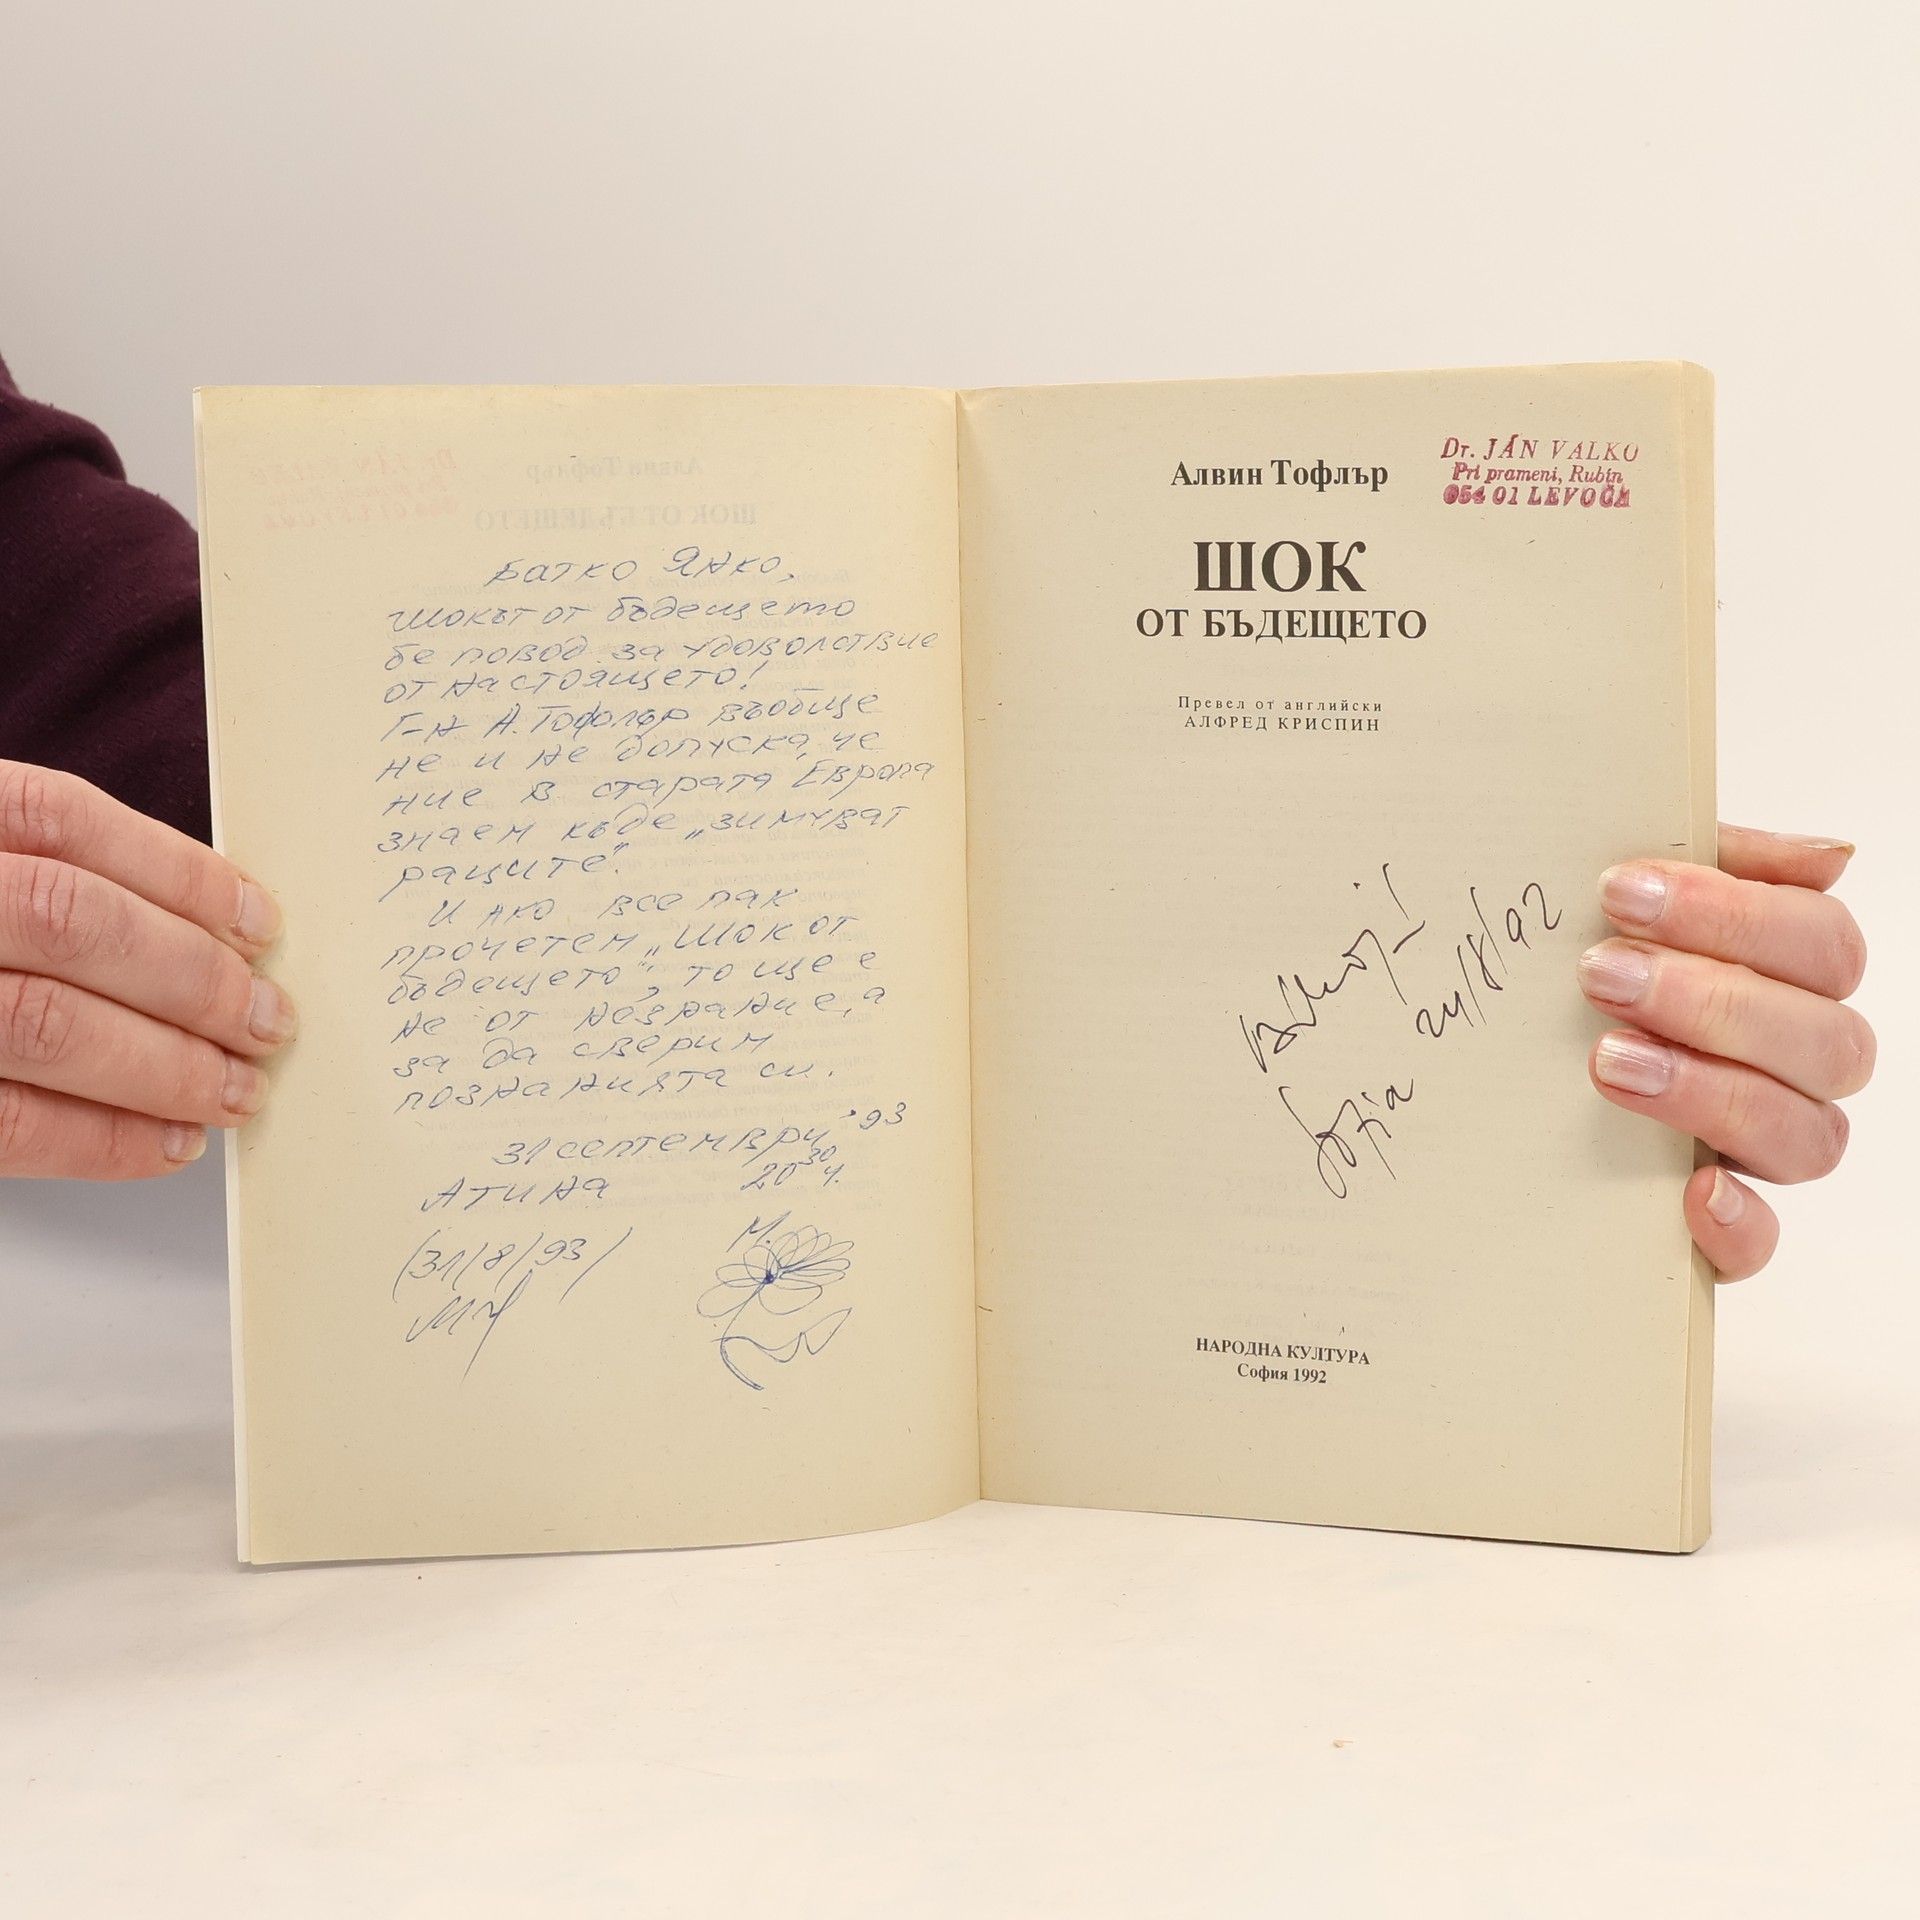 Батко Янко,
шокът от бъдещето
бе повод за удоволствие
от настоящето!
Г-н А. Тофлър въобще
не и не допуска, че
ние в старата Европа
знаем къде „зимуват
раците".
И ако все пак
прочетем „Шок от
бъдещето", то ще е
не от незнание, а
за да сверим
познанията си.
31 септември '93
Атина 20 30 ч.
(31/8/93)
М.
Dr. JÁN VALKO
Pri prameni, Rubín
054 01 LEVOČA
Алвин Тофлър
ШОК
ОТ БЪДЕЩЕТО
Превел от английски
АЛФРЕД КРИСПИН
24/8/92
Sofia
НАРОДНА КУЛТУРА
София 1992